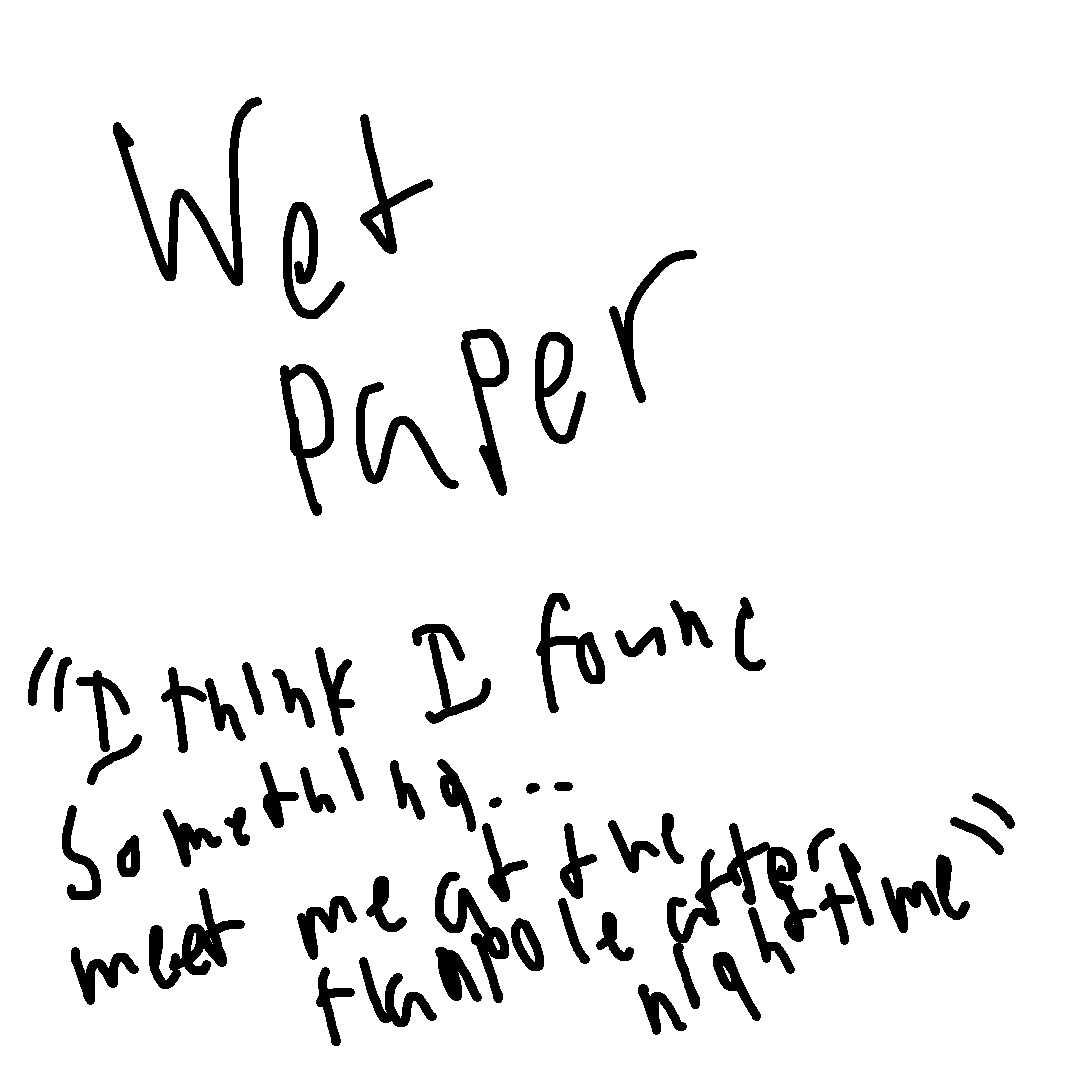 Wet
paper
"I think I found
Something...
meet me at the
flagpole after
nightime"